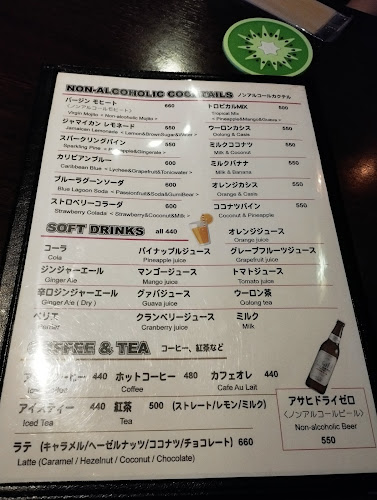 NON-ALCOHOLIC COCKTAILS ノンアルコールカクテル
バージン モヒート 660
(ノンアルコールモヒート)
Virgin Mojito < Non-alcoholic Mojito >
トロピカルMIX 550
Tropical Mix
< Pineapple&Mango&Guava >
ジャマイカン レモネード 550
Jamaican Lemonade
ウーロンカシス 550
Oolong & Cassis
スパークリングパイン 550
Sparkling Pine < Pineapple&Gingerale >
ミルクココナツ 550
Milk & Coconut
カリビアンブルー 600
Caribbean Blue < Lychee&Grapefruit&Tonicwater >
ミルクバナナ 550
Milk & Banana
ブルーラグーンソーダ 600
Blue Lagoon Soda
オレンジカシス 550
Orange & Casis
ストロベリーコラーダ 600
Strawberry Colada < Strawberry&Coconut&Milk >
ココナツパイン 550
Coconut & Pineapple
SOFT DRINKS all 440
オレンジジュース
Orange juice
コーラ パイナップルジュース グレープフルーツジュース
Cola Pineapple juice Grapefruit juice
ジンジャーエール マンゴージュース トマトジュース
Ginger Ale Mango juice Tomato juice
辛口ジンジャーエール グァバジュース ウーロン茶
Ginger Ale ( Dry ) Guava juice Oolong tea
ペリエ クランベリージュース ミルク
Cranberry juice Milk
COFFEE & TEA コーヒー、紅茶など
440 ホットコーヒー 480 カフェオレ 440
Coffee Cafe Au Lait
アイスティー 440 紅茶 500 (ストレート/レモン/ミルク)
Iced Tea Tea
ラテ (キャラメル/ヘーゼルナッツ/ココナツ/チョコレート) 660
Latte (Caramel / Hezelnut / Coconut / Chocolate)
アサヒドライゼロ
〈ノンアルコールビール〉
Non-alcoholic Beer
550